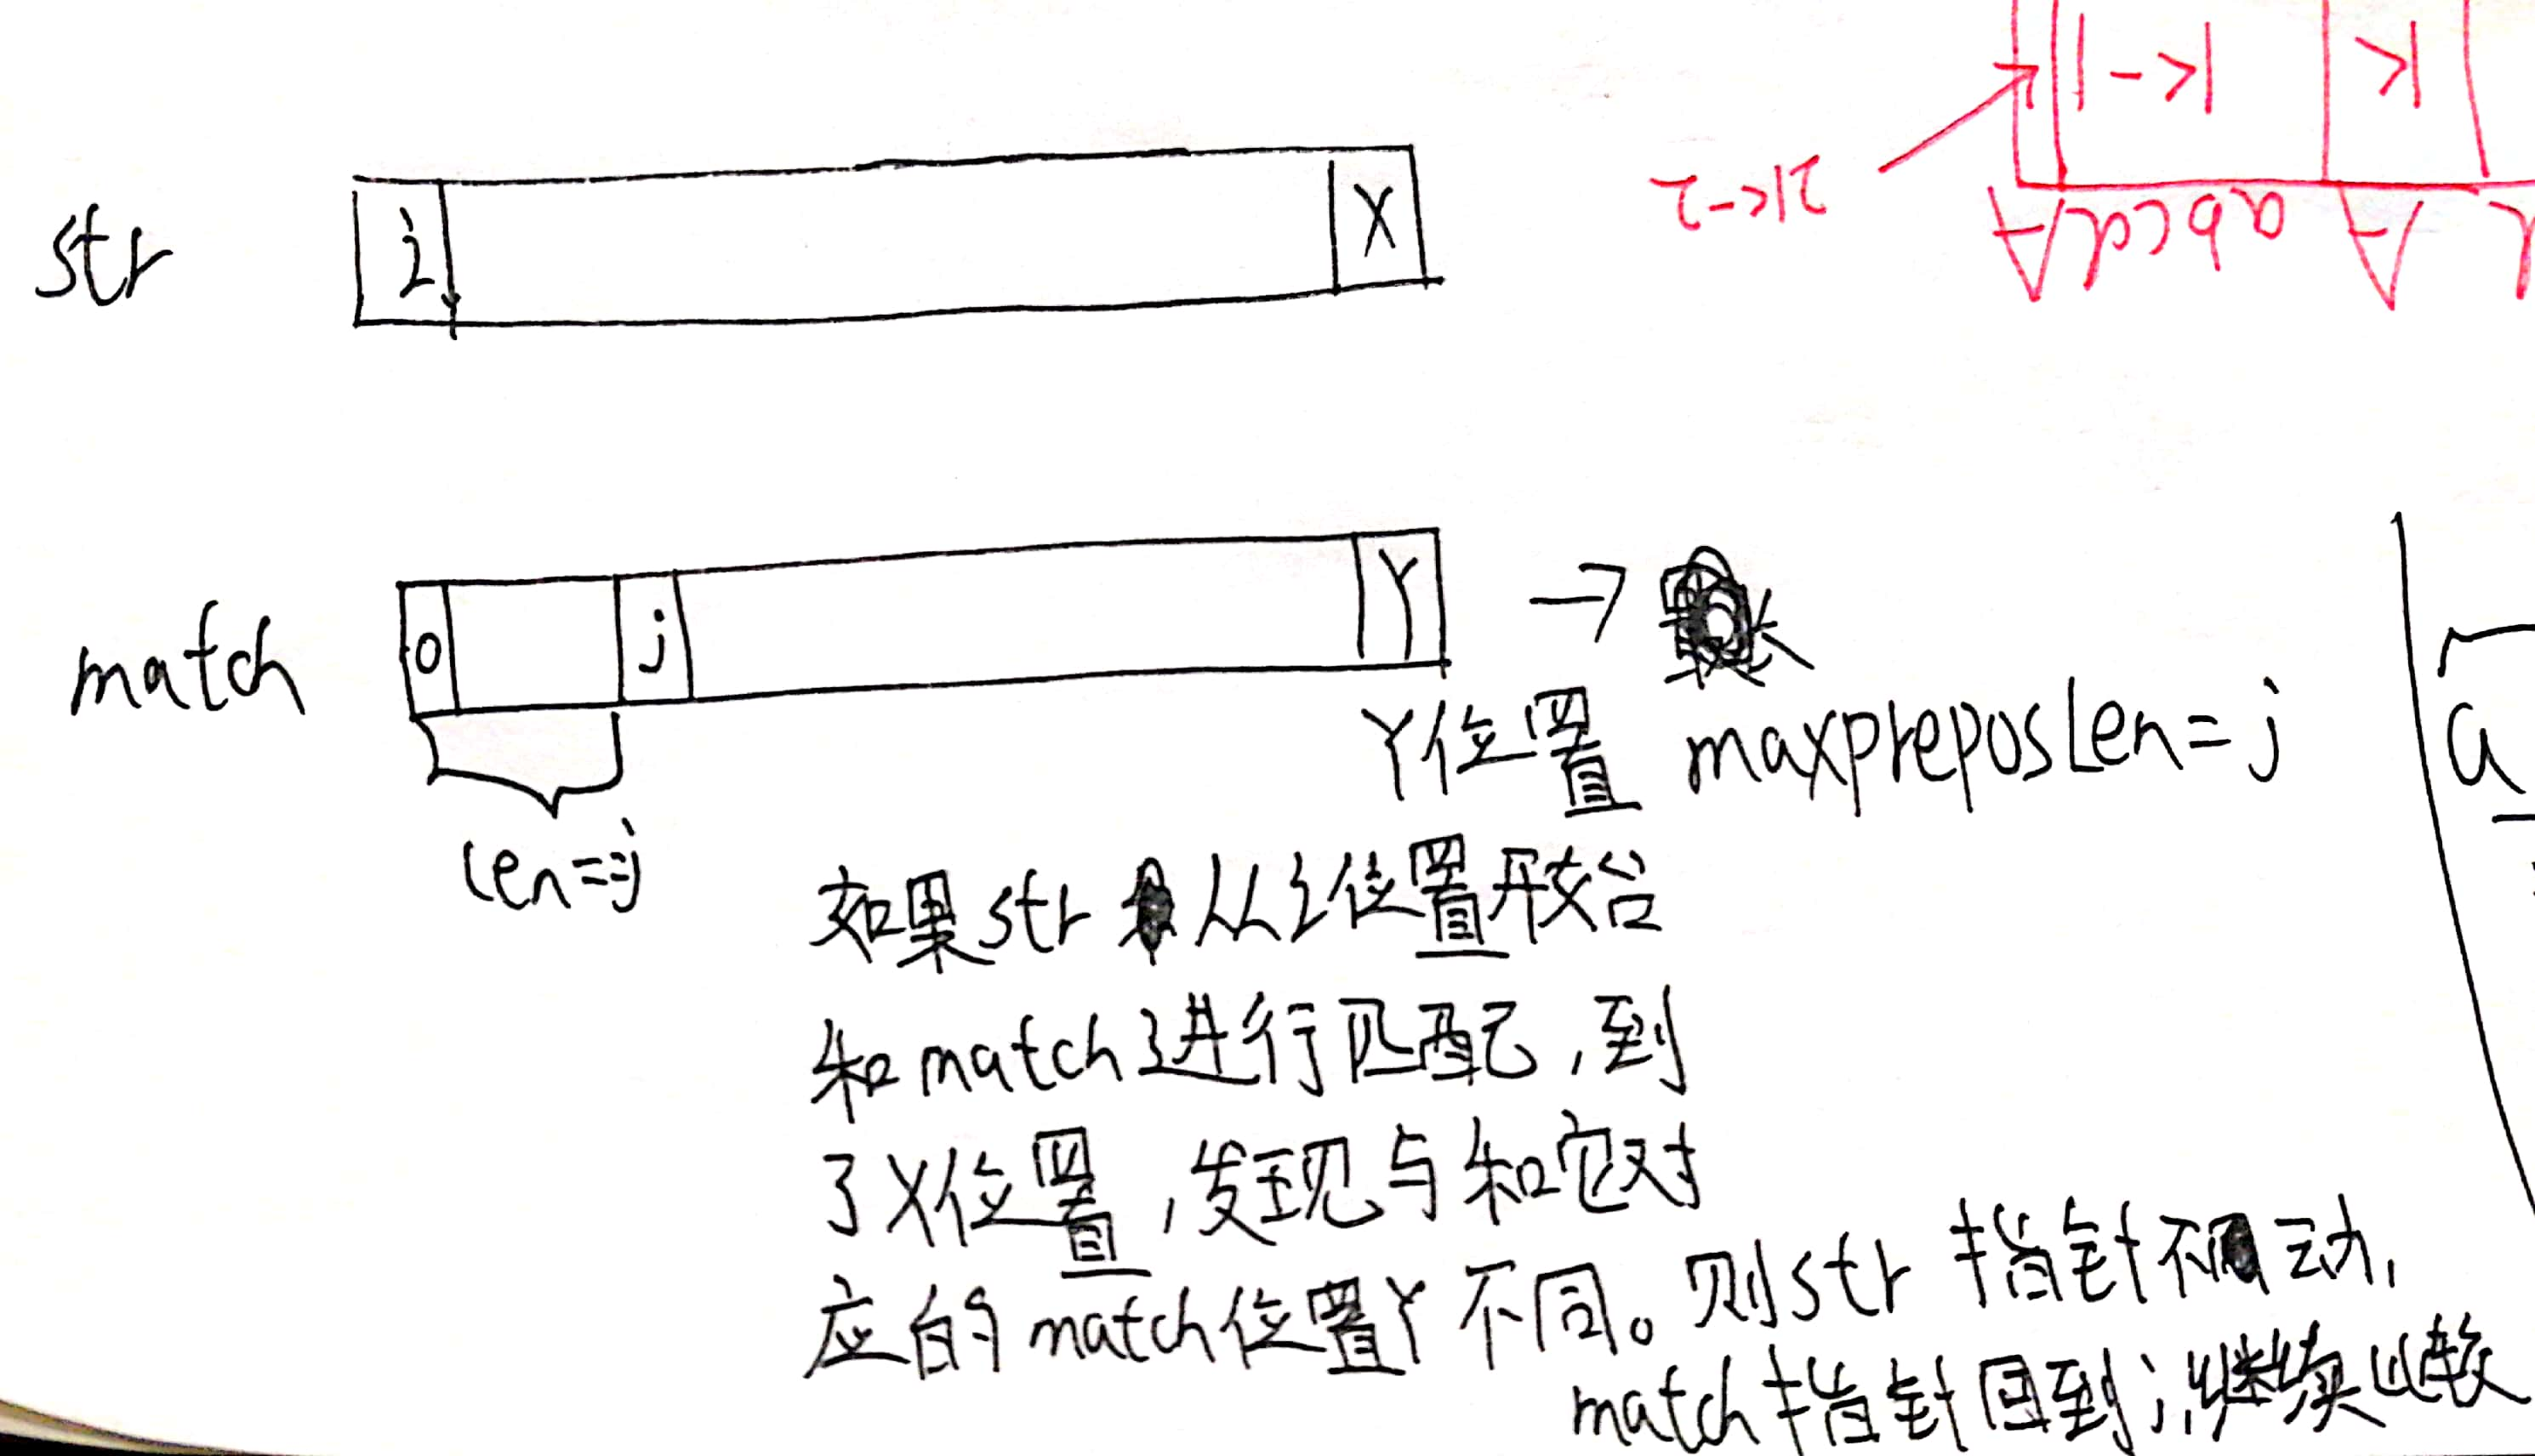 str
i
X
match
0
j
Y
→
Y位置 maxpreposLen=j
len=j
如果str 从i位置开始
和match进行匹配,到
了X位置,发现与和它对
应的match位置Y不同。则str指针不动,
match指针回到j,继续比较
k-1
k
abcd
a